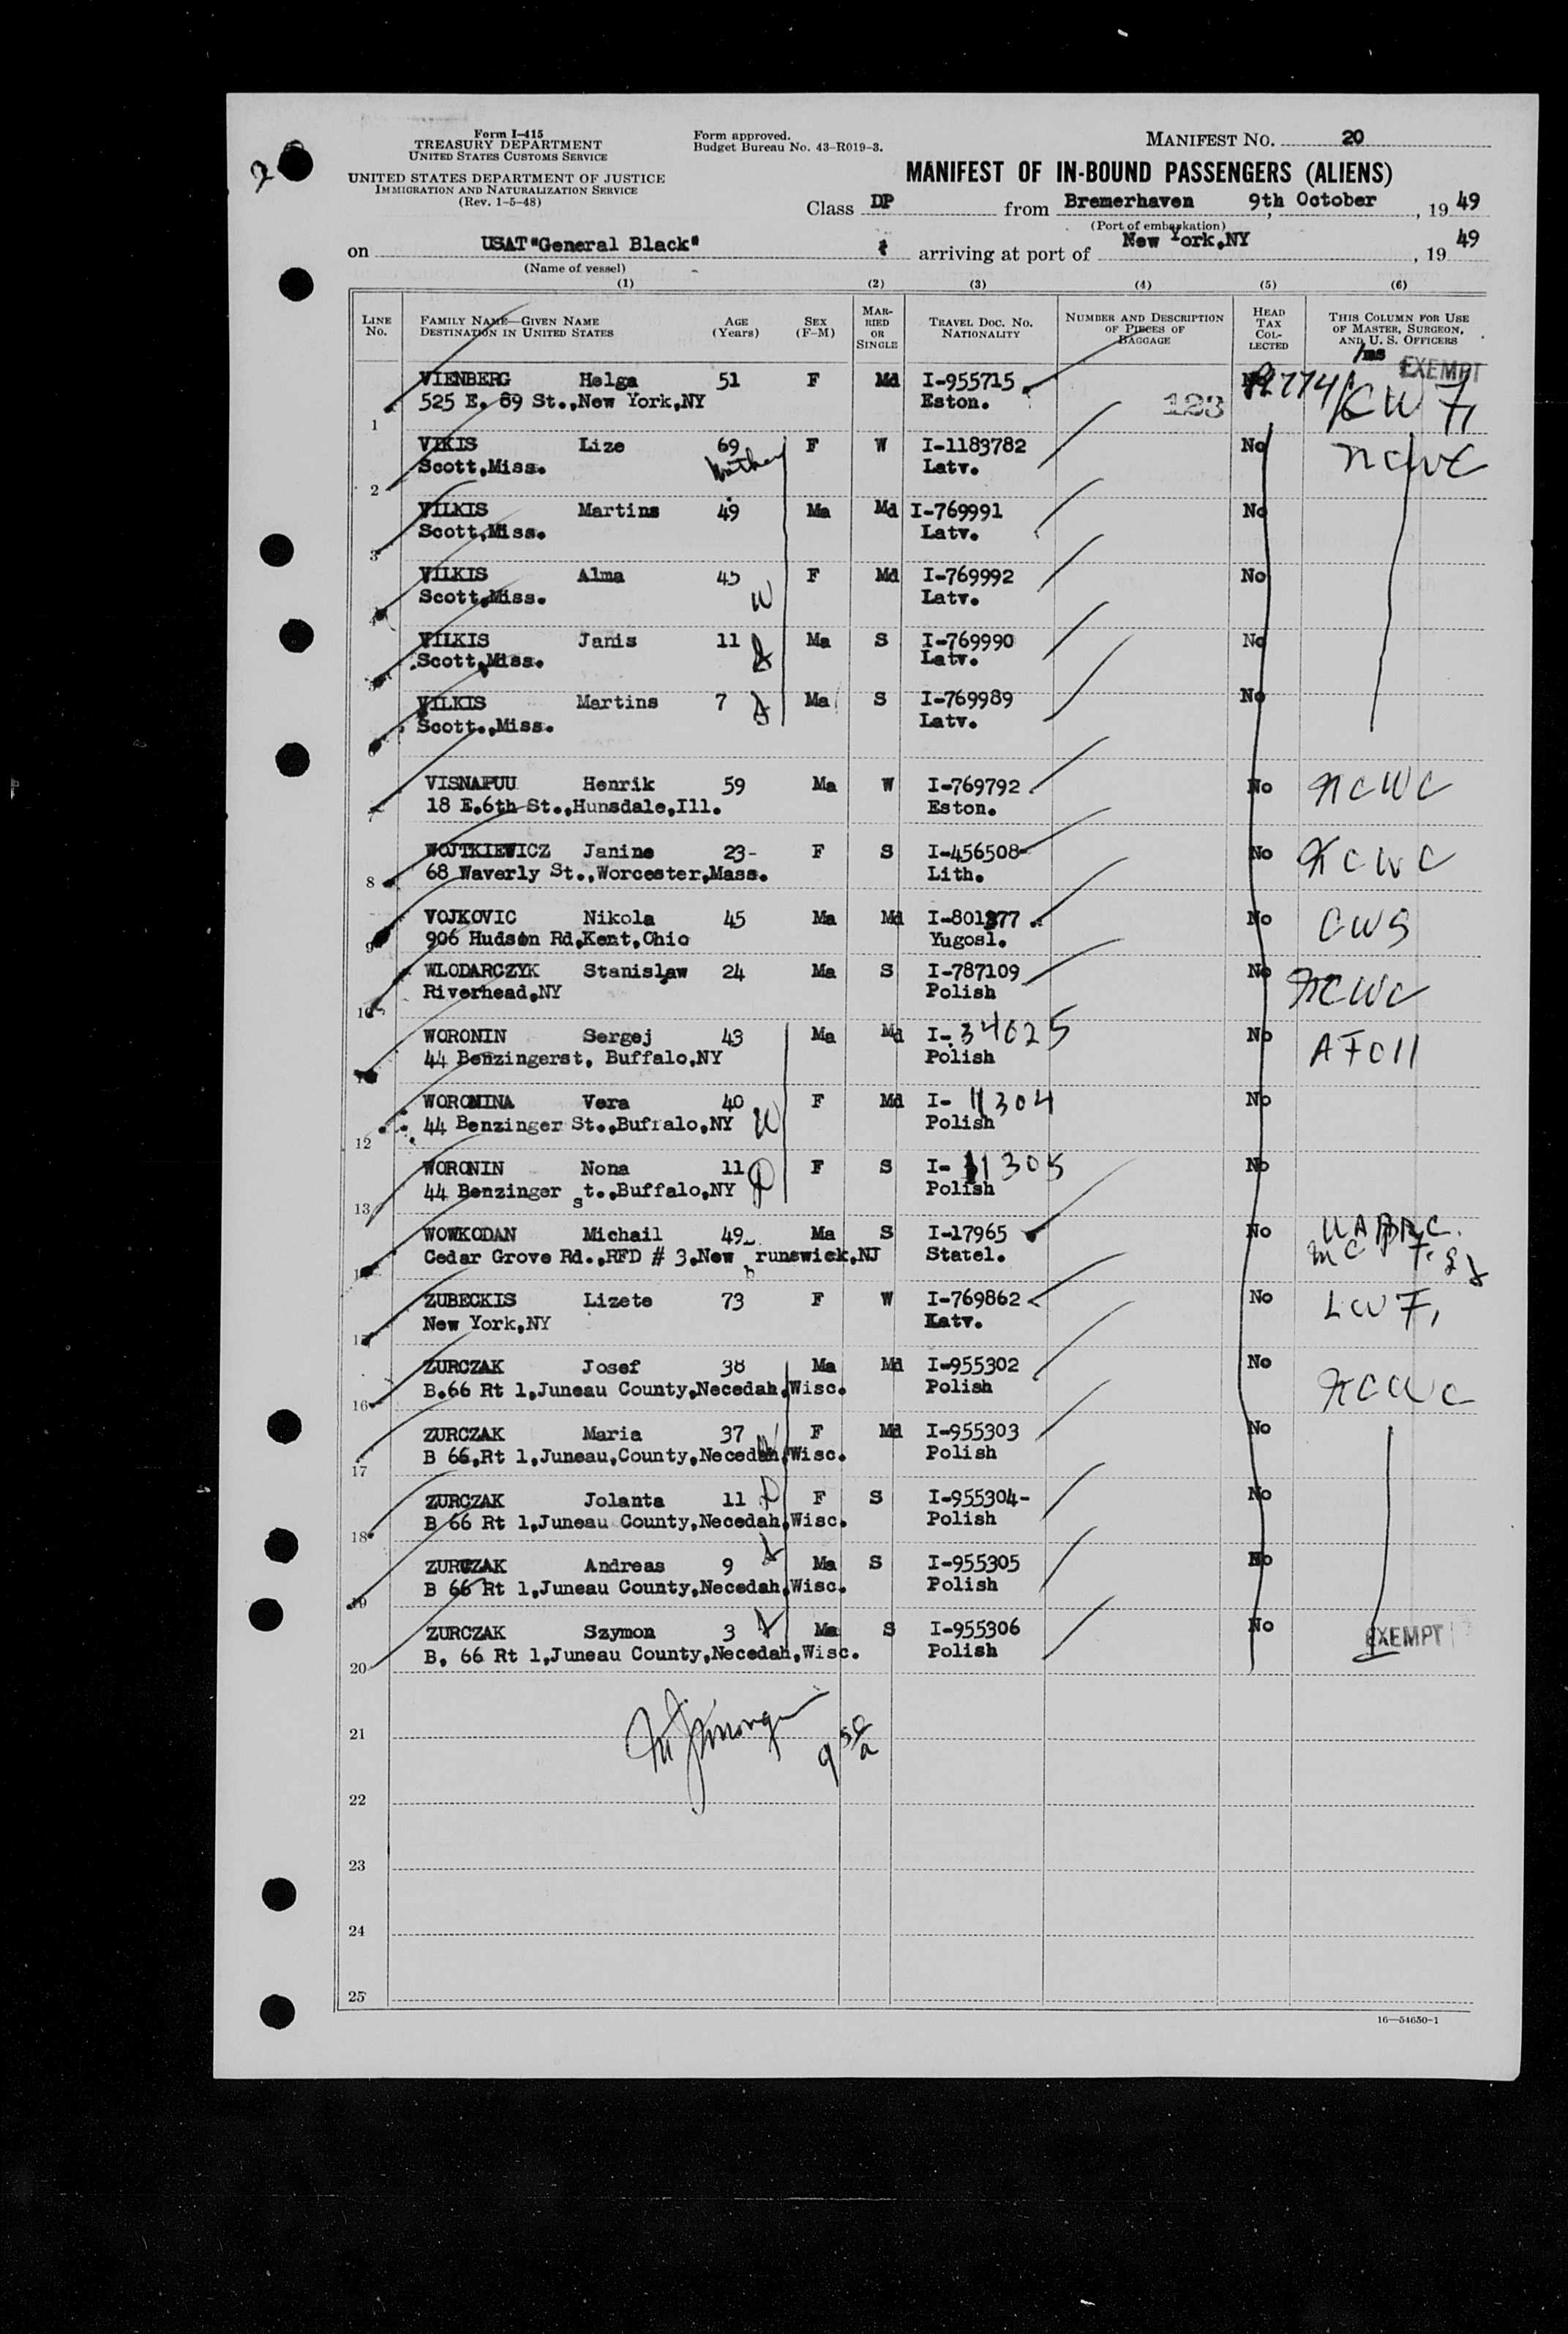 Form I-415
TREASURY DEPARTMENT
UNITED STATES CUSTOMS SERVICE
UNITED STATES DEPARTMENT OF JUSTICE
IMMIGRATION AND NATURALIZATION SERVICE
(Rev. 1-5-48)
Form approved.
Budget Bureau No. 43-R019-3.
MANIFEST NO. 20
MANIFEST OF IN-BOUND PASSENGERS (ALIENS)
Class DP from Bremerhaven 9th October, 1949
(Port of embarkation)
on USAT "General Black" arriving at port of New York,NY, 1949
(Name of vessel)
(1) (2) (3) (4) (5) (6)
LINE No. FAMILY NAME—GIVEN NAME DESTINATION IN UNITED STATES AGE (Years) SEX (F-M) MARRIED OR SINGLE TRAVEL DOC. NO. NATIONALITY NUMBER AND DESCRIPTION OF PIECES OF BAGGAGE HEAD TAX COLLECTED THIS COLUMN FOR USE OF MASTER, SURGEON, AND U. S. OFFICERS
EXEMPT
VIENBERG Helga 51 F Md I-955715
1 525 E. 89 St.,New York,NY Eston. 123
VIKIS Lize 69 F W I-1183782 No NCWC
2 Scott,Miss. Mother Latv.
VILKIS Martins 49 Ma Md I-769991 No
3 Scott,Miss. Latv.
VILKIS Alma 45 F Md I-769992 No
4 Scott,Miss. W Latv.
VILKIS Janis 11 Ma S I-769990 No
5 Scott,Miss. Latv.
VILKIS Martins 7 Ma S I-769989 No
6 Scott.,Miss. Latv.
VISNAPUU Henrik 59 Ma W I-769792 No NCWC
7 18 E.6th St.,Hunsdale,Ill. Eston.
WOJTKIEWICZ Janine 23- F S I-456508- No NCWC
8 68 Waverly St.,Worcester,Mass. Lith.
VOJKOVIC Nikola 45 Ma Md I-801377 No CWS
9 906 Hudson Rd,Kent,Ohio Yugosl.
WLODARCZYK Stanislaw 24 Ma S I-787109 No NCWC
10 Riverhead,NY Polish
WORONIN Sergej 43 Ma Md I-34025 No
44 Benzingerst. Buffalo,NY Polish
WORONINA Vera 40 F Md I-11304 No
12 44 Benzinger St.,Buffalo,NY W Polish
WORONIN Nona 11 F S I-11305 No
13 44 Benzinger st.,Buffalo,NY Polish
WOWKODAN Michail 49 Ma S I-17965 No
Cedar Grove Rd.,RFD # 3,New brunswick,NJ Statel.
ZUBECKIS Lizete 73 F W I-769862 No LWF,
New York,NY Latv.
ZURCZAK Josef 38 Ma Md I-955302 No NCWC
16 B.66 Rt 1,Juneau County,Necedah,Wisc. Polish
ZURCZAK Maria 37 F Md I-955303 No
17 B 66,Rt 1,Juneau,County,Necedah,Wisc. Polish
ZURCZAK Jolanta 11 F S I-955304- No
18 B 66 Rt 1,Juneau County,Necedah,Wisc. Polish
ZURCZAK Andreas 9 Ma S I-955305 No
19 B 66 Rt 1,Juneau County,Necedah,Wisc. Polish
ZURCZAK Szymon 3 Ma S I-955306 No
20 B. 66 Rt 1,Juneau County,Necedah,Wisc. Polish EXEMPT
21
22
23
24
25
16—54650-1